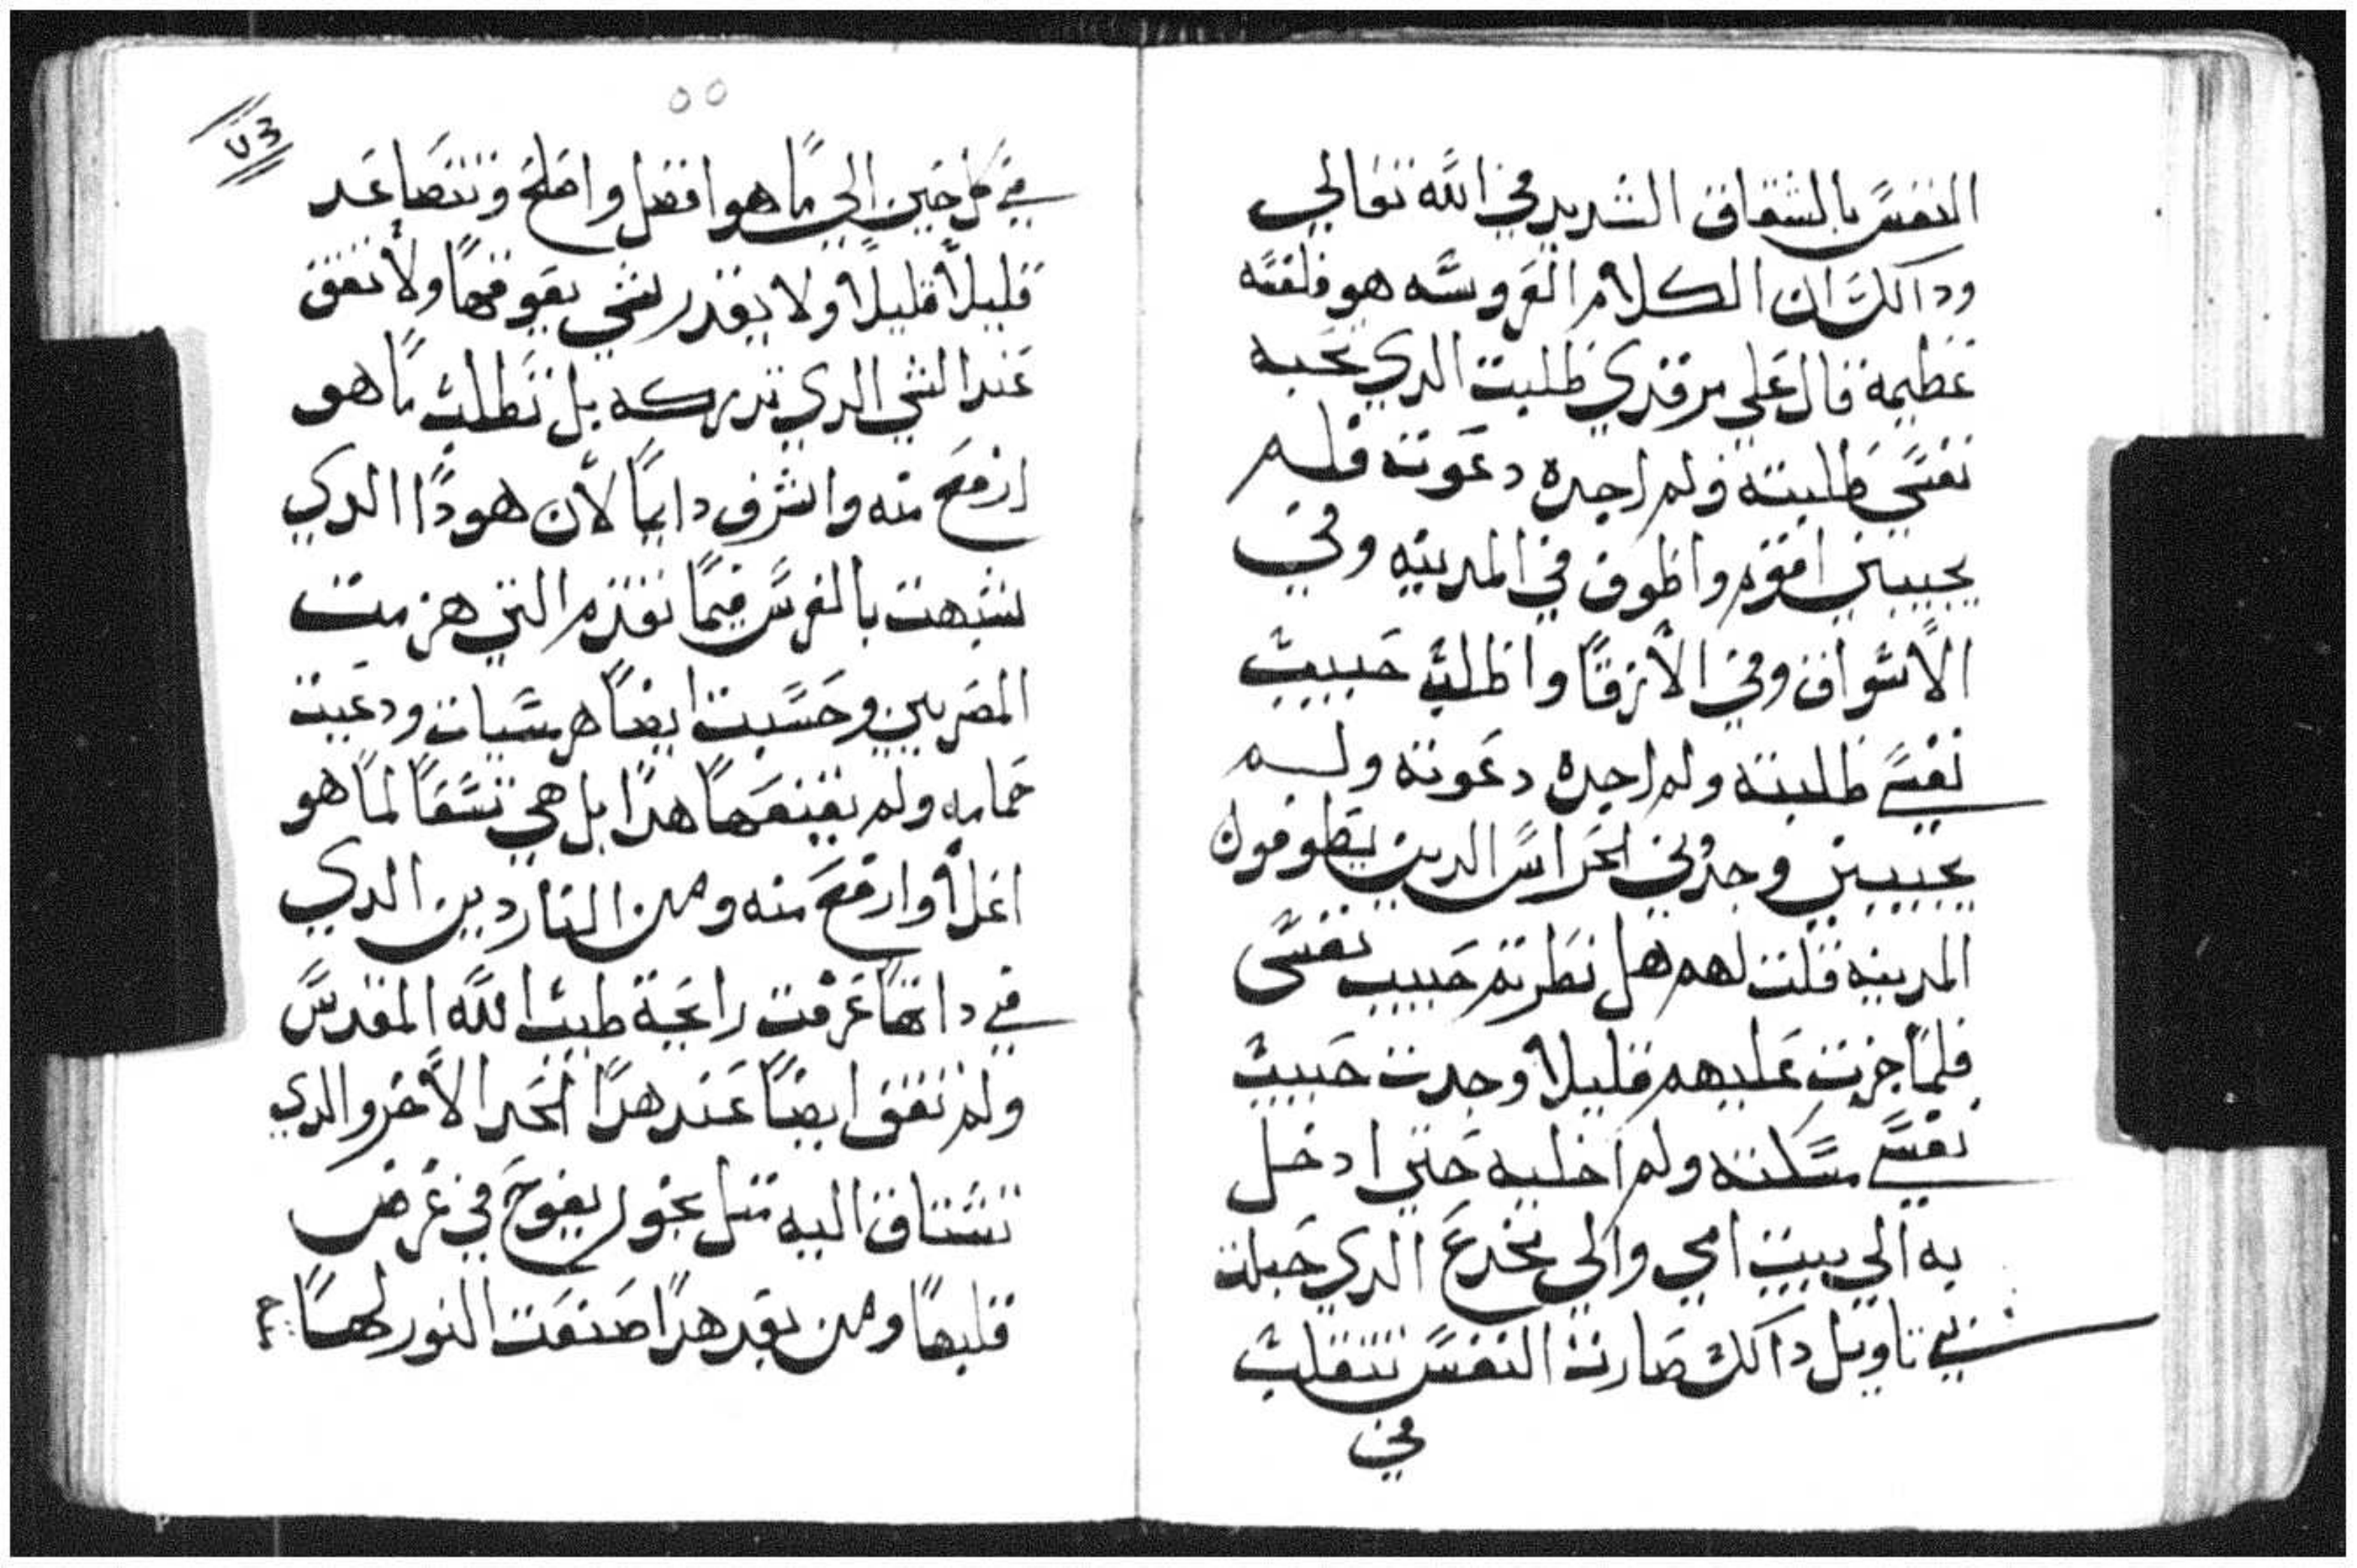 النفس بالشقاق الشديد في الله تعالي
وداالك ان الكلام العروسه هو فلقته
عظيمة قال علي مرقدي طلبت الدي تحبه
نفسي طلبته ولم اجده دعوته فلم
يجيبني اقوم واطوف في المدينه وفي
الاسواق وفي الازقا واطلب حبيب
نفسي طلبته ولم اجده دعوته ولم
يجيبني وجدني الحراس الدين يطوفون
المدينه قلت لهم هل نظرتم حبيب نفسي
فلما جزت عليهم قليلا وجدت حبيب
نفسي مسكته ولم اخليه حتي ادخل
به الي بيت امي والي مخدع الدي حبلت
بي تاويل داالك صارت النفس تتقلب
في
٥٥
في كل حين الي ما هو افضل واصلح وتتصاعد
قليلا قليلا ولا يقدر شي يعوقها ولا تقف
عند الشي الدي تدركه بل تطلب ما هو
ارفع منه واشرف دايما لان هودا الدي
شبهت بالفرس فيما تقدم التي هزمت
المصريين وحسبت ايضا هرسيات ودعيت
حمامه ولم يقنعها هدا بل هي تسقا لما هو
اعلا وارفع منه ومن الناردين الدي
في داتها عرفت رايحة طيب الله المقدس
ولم تقف ايضا عند هدا الحد الاخر والدي
تشتاق اليه مثل بخور يفوح في عرض
قلبها ومن بعد هدا صنعت النور لها